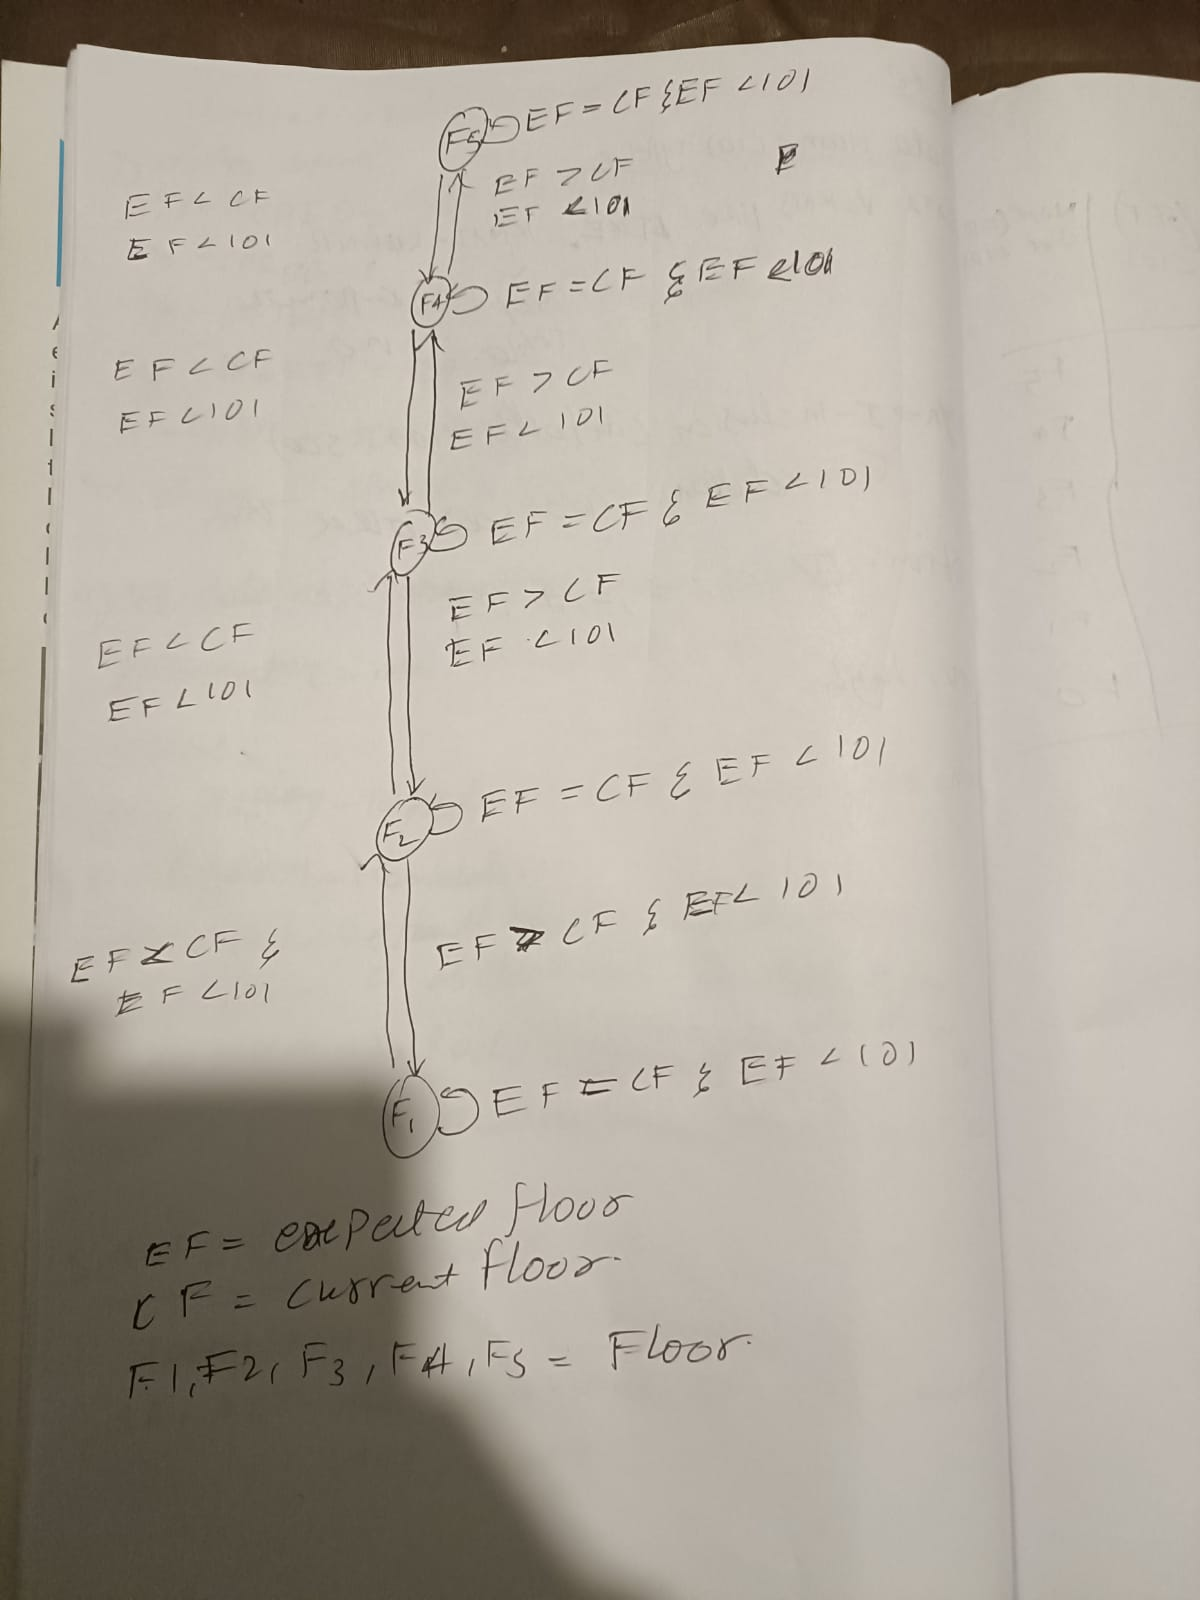 F5 EF = CF & EF < 101
EF > CF
EF < 101
E
EF < CF
EF < 101
F4 EF = CF & EF < 101
EF < CF
EF < 101
EF > CF
EF < 101
F3 EF = CF & EF < 101
EF > CF
EF < 101
EF < CF
EF < 101
F2 EF = CF & EF < 101
EF > CF & EF < 101
EF < CF &
EF < 101
F1 EF = CF & EF < 101
EF = expected floor
CF = Current floor.
F1, F2, F3, F4, F5 = Floor.